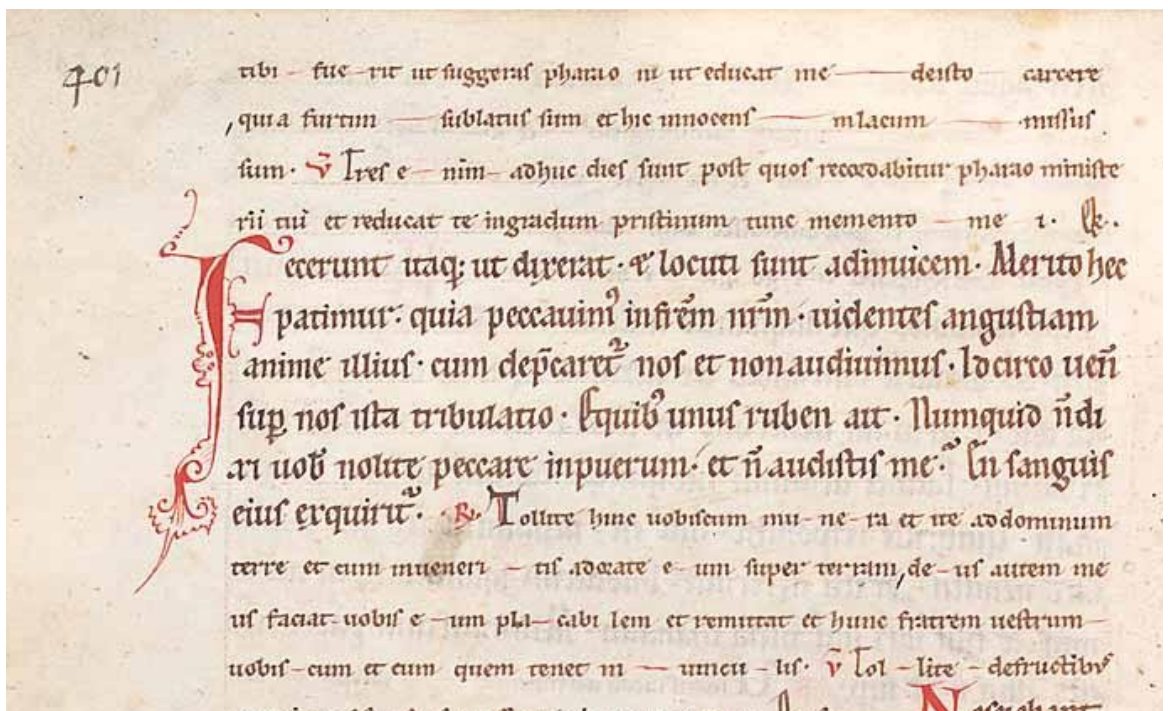 401
tibi – fue – rit ut suggeras pharao ni ut educat me — de isto carcere
quia furtim — sublatus sum et hic innocens — in lacum — missus
sum · v̄ Tres e – nim – adhuc dies sunt post quos recordabitur pharao ministe
rii tui et reducat te in gradum pristinum tunc memento — me i · 
Fecerunt itaq; ut dixerat · & locuti sunt adinuicem · Merito hec
patimur · quia peccauim᾽ in frēm nrm̄ · uidentes angustiam
anime illius · cum dep̄caret᷑ nos et non audiuimus · Idcirco ueñ
sup nos ista tribulatio · Equib᾽ unus ruben ait · Numquid ñ di
xi uob̄ nolite peccare in puerum · et ñ audistis me · En sanguis
eius exquirit᷑ · R̷ Tollite hinc uobiscum mu – ne – ra et ite ad dominum
terre et cum inueneri – tis adorate e – um super terram, de – us autem me
us faciat – uobis e – um pla – cabi lem et remittat et hunc fratrem uestrum –
uobis – cum et eum quem tenet in — uincu – lis · v̄ Tol – lite – de fructib᾽